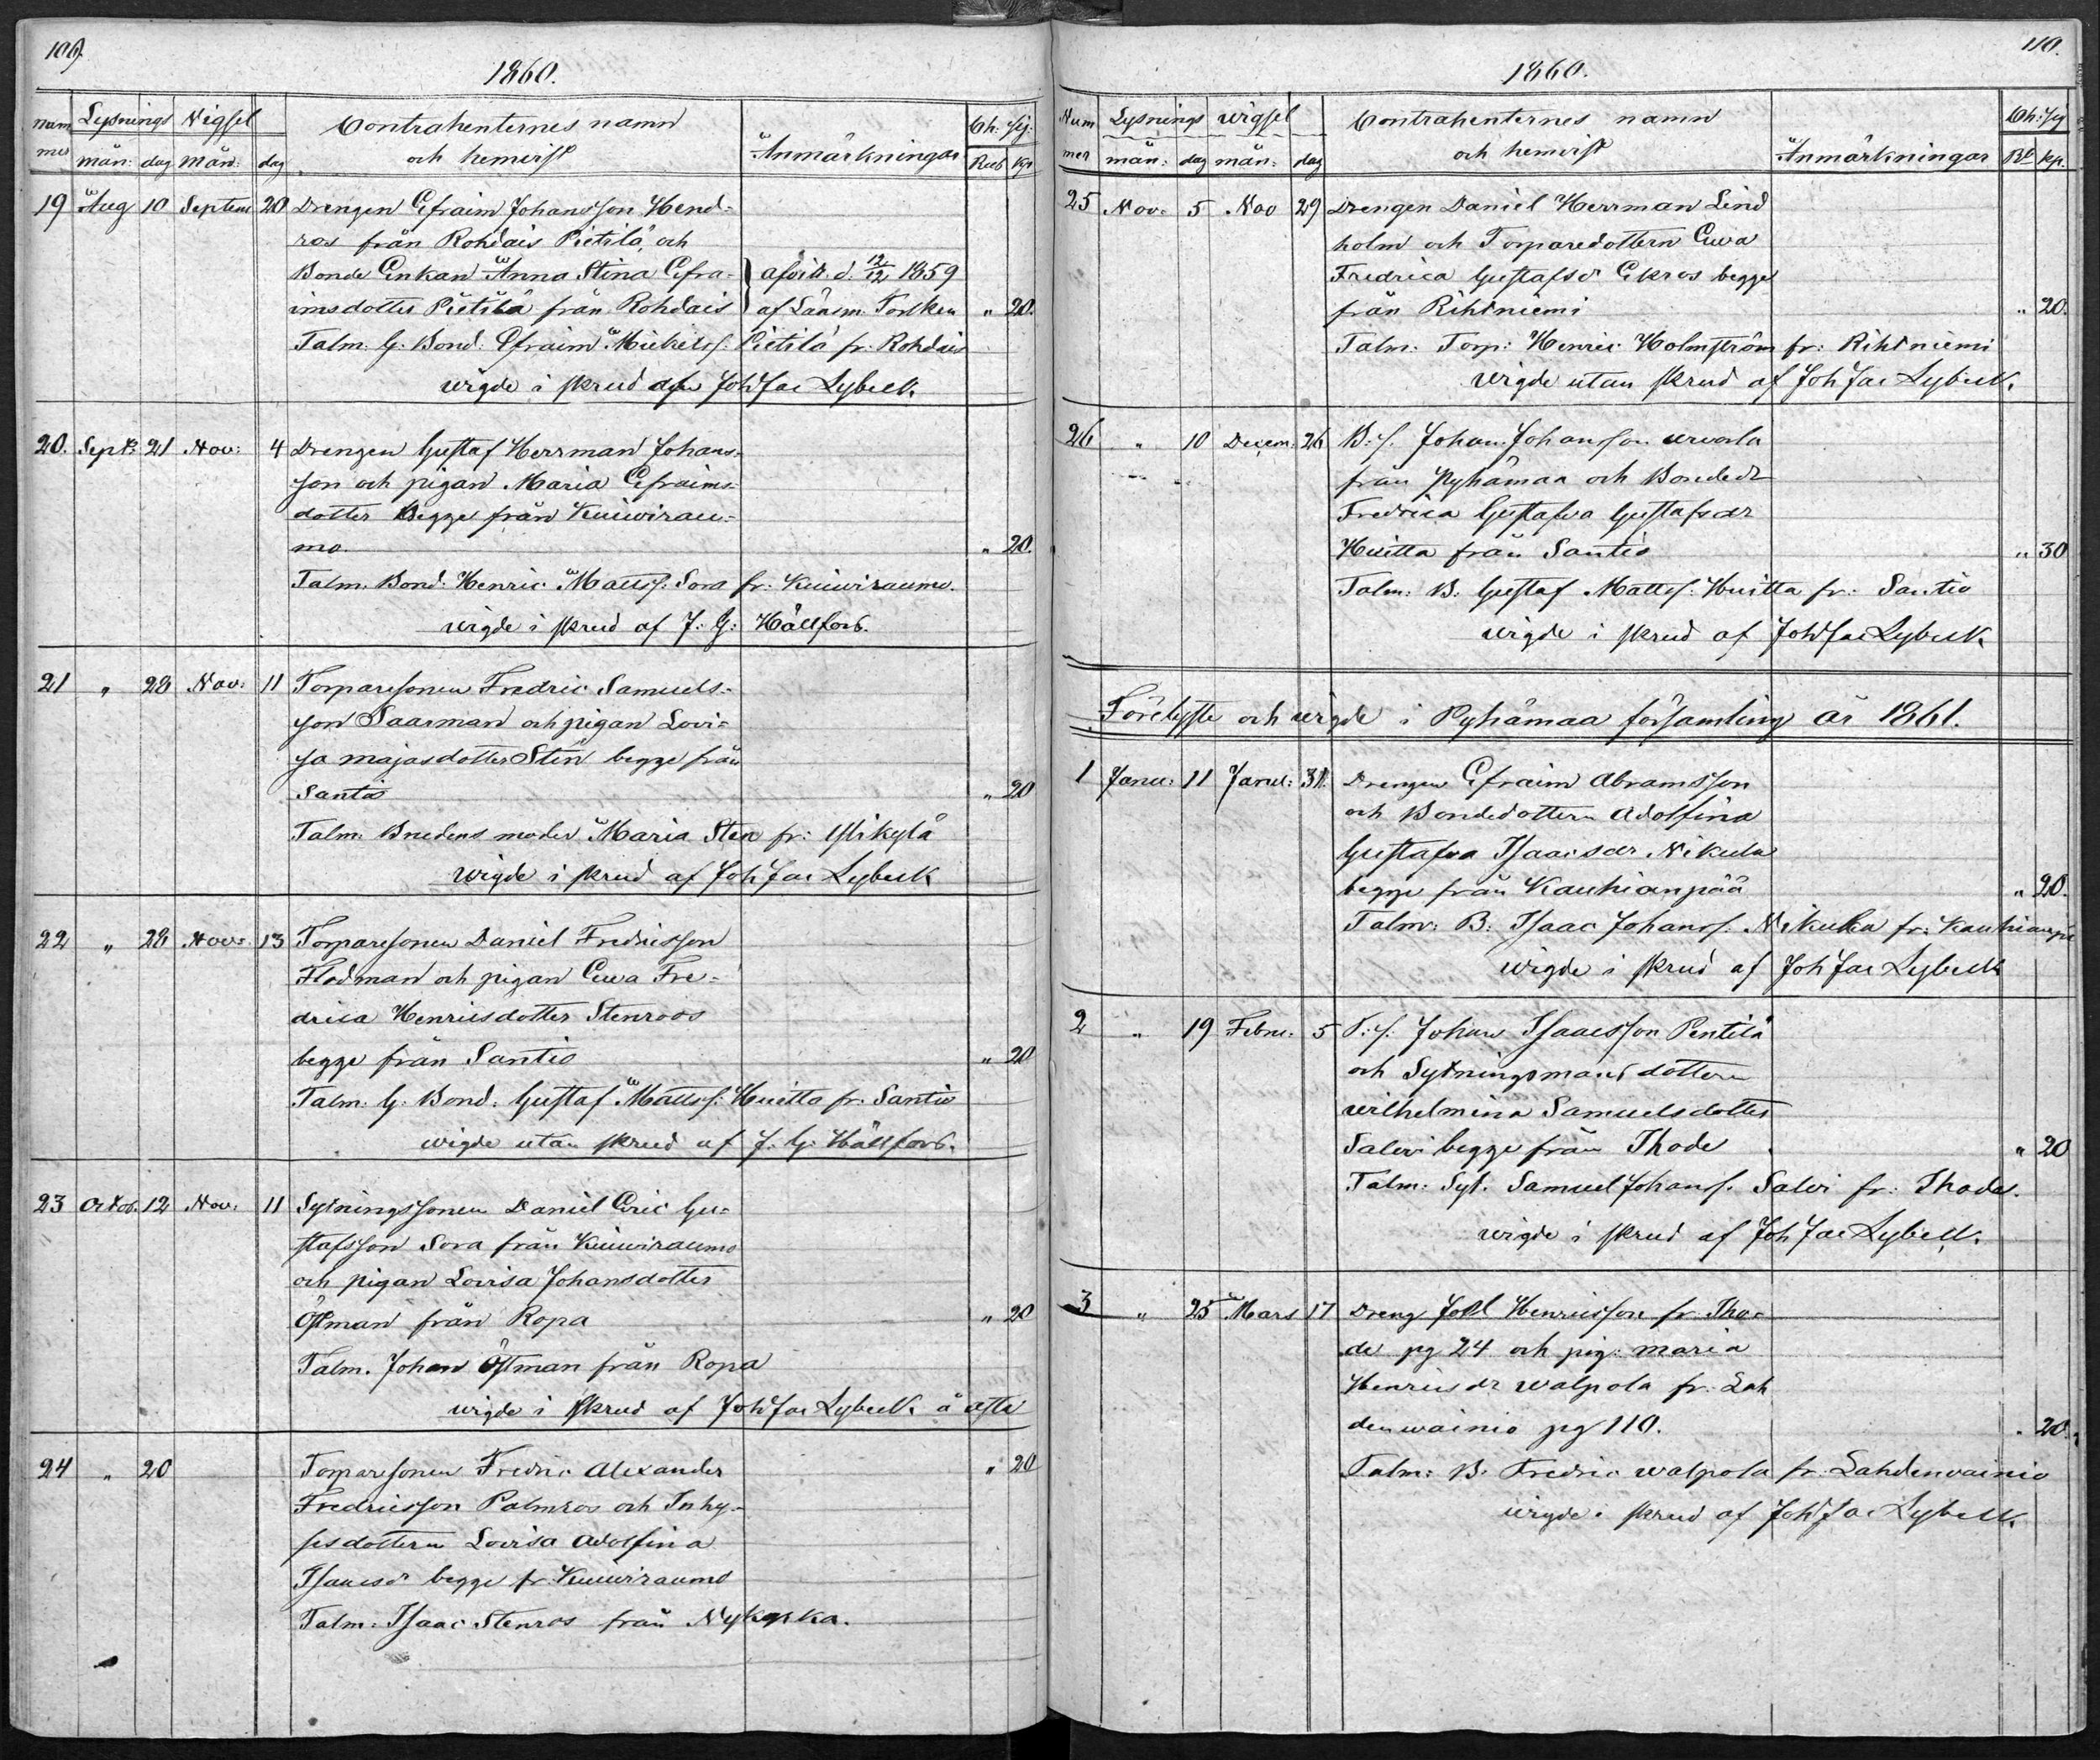 109.
1860.
Num mer Lysnings Vigsel Contrahenternes namn Anmärkningar Ch: Sig:
mån: dag mån: dag och hemvist Rub Kp
19 Aug 10 Septem 20 Drengen Efraim Johansson Hend-
ros från Rohdais Pietilä, och
Bonde Enkan Anna Stina Efra- afvitt. d. 12/12 1859
imsdotter Pietilä från Rohdais af Länsm. Forsken " 20.
Talm. G. Bond. Efraim Michelss. Pietilä fr. Rohdais
wigde i skrud af Joh Jac Lybeck.
20. Sept: 21 Nov: 4 Drengen Gustaf Herrman Johans-
son och pigan Maria Efraims-
dotter Begge från Kuiwirau-
mo. " 20.
Talm. Bond: Henric Matss: Sora fr. Kuiwiraumo.
wigde i skrud af J: G: Hällfors.
21 " 28 Nov: 11 Torparesonen Fredric Samuels-
son Saarman och pigan Lovi-
sa majasdotter Sten begge från
Santio " 20
Talm. Brudens moder Maria Sten fr: Ylikylä
wigde i skrud af Joh Jac Lybeck
22 " 28 Nov: 13 Torparesonen Daniel Fredricsson
Flodman och pigan Ewa Fre-
drica Henricsdotter Stenroos
begge från Santio " 20
Talm. G. Bond. Gustaf Matss: Huitta fr. Santio
wigde utan skrud af J. G. Hällfors.
23 Octob. 12 Nov. 11 Sytningssonen Daniel Eric Gu-
stafsson Sora från Kuiwiraumo
och pigan Lovisa Johansdotter
Östman från Ropa " 20
Talm. Johan Östman från Ropa
wigde i skrud af Joh Jac Lybeck.
24 " 20 Torparesonen Fredric Alexander " 20
Fredricsson Palmros och Inhy-
sesdottern Lovisa Adolfina
Isaacsdr begge fr. Kuiwiraumo
Talm: Isaac Stenros från Nykyrka.
110.
1860.
Num mer Lysnings wigsel Contrahenternes namn Anmärkningar Ch: Sig
mån: dag mån: dag och hemvist Rl kp.
25 Nov. 5 Nov 29 Drengen Daniel Herrman Lind
holm och Torparedottern Ewa
Fredrica Gustafsdr Ekros begge
från Rihtniemi " 20.
Talm. Torp: Henric Holmström fr: Rihtniemi
wigde utan skrud af Joh Jac Lybeck.
26 " 10 Decem: 26 B: s. Johan Johansson urvola
från Pyhämaa och Bondedr
Fredrica Gustafva Gustafsdr
Huitta från Santio " 30
Talm: B: Gustaf Matss: Huitta fr: Santio
wigde i skrud af Joh Jac Lybeck
Förelyste och wigde i Pyhämaa församling år 1861.
1 Janu: 11 Janu: 31. Drengen Efraim Abramsson
och Bondedottern Adolfina
Gustafva Isaacsdr Nikula
begge från Kauhianpää " 20.
Talm: B: Isaac Johanss. Nikula fr: Kauhianpä
wigde i skrud af Joh Jac Lybeck
2 " 19 Febru: 5 T: s. Johan Isaacsson Pentilä
och Sytningsmans dottern
wilhelmina Samuelsdotter
Salvi begge från Ihode " 20
Talm: Syt. Samuel Johans. Salvi fr: Ihode.
wigde i skrud af Joh Jac Lybeck.
3 " 25 Mars 17 Dreng Joel Henricsson fr. Iho-
de pg 24 och pig: maria
Henricsdr walpola fr. Lah
denwainio pg 110. " 20.
Talm: B. Fredric walpola fr. Lahdenwainio
wigde i skrud af Joh Jac Lybeck.